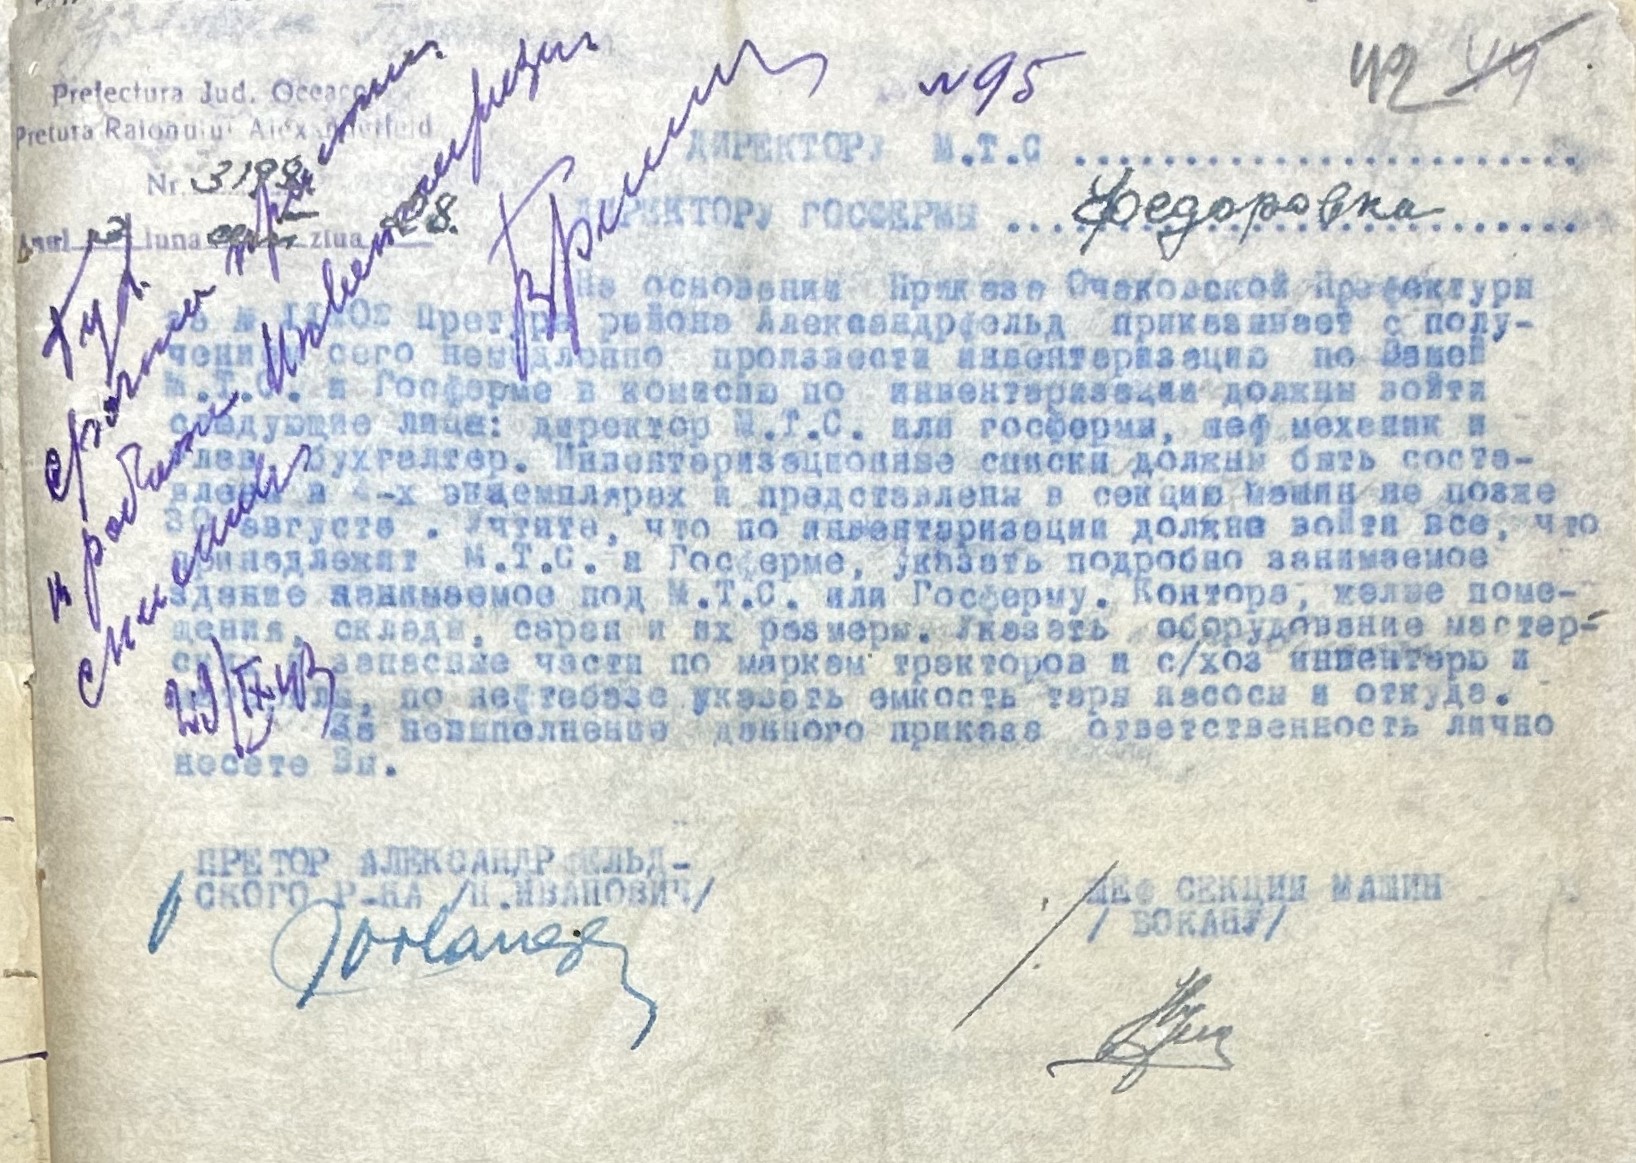 № 95
42 44
Prefectura Jud. Oceacov
Pretura Raionului Alexanderfeld
Nr. 3199
Anul luna ziua 28.
ДИРЕКТОРУ М.Т.С ........................
ДИРЕКТОРУ ГОСФЕРМЫ ... Федоровка
На основании Приказа Очаковской Префектури
за № Претура района Александрфельд приказывает с полу-
чением сего немедленно произвести инвентаризацию по Вашей
М.Т.С. и Госферме в комисию по инвентаризации должны войти
следующие лица: директор М.Т.С. или госфермы, шеф механик и
глав. бухгалтер. Инвентаризационные списки должны быть соста-
влены в 4-х экземплярах и представлены в секцию машин не позже
30 августа . Учтите, что по инвентаризации должно войти все, что
принадлежит М.Т.С. и Госферме, указать подробно занимаемое
здание занимаемое под М.Т.С. или Госферму. Контора, жилые поме-
щения, склады, сараи и их размеры. Указать оборудование мастер-
ской запасные части по маркам тракторов и с/хоз инвентарь и
по нефтебазе указать емкость тары насосы и откуда.
За невыполнение данного приказа ответственность лично
несете Вы.
Бух.
срочно принять
и работе Инвентаризации
списки
29/IX 43
ПРЕТОР АЛЕКСАНДРФЕЛЬД-
СКОГО Р-НА /П.ИВАНОВИЧ/
ШЕФ СЕКЦИИ МАШИН
/ БОКАНУ/